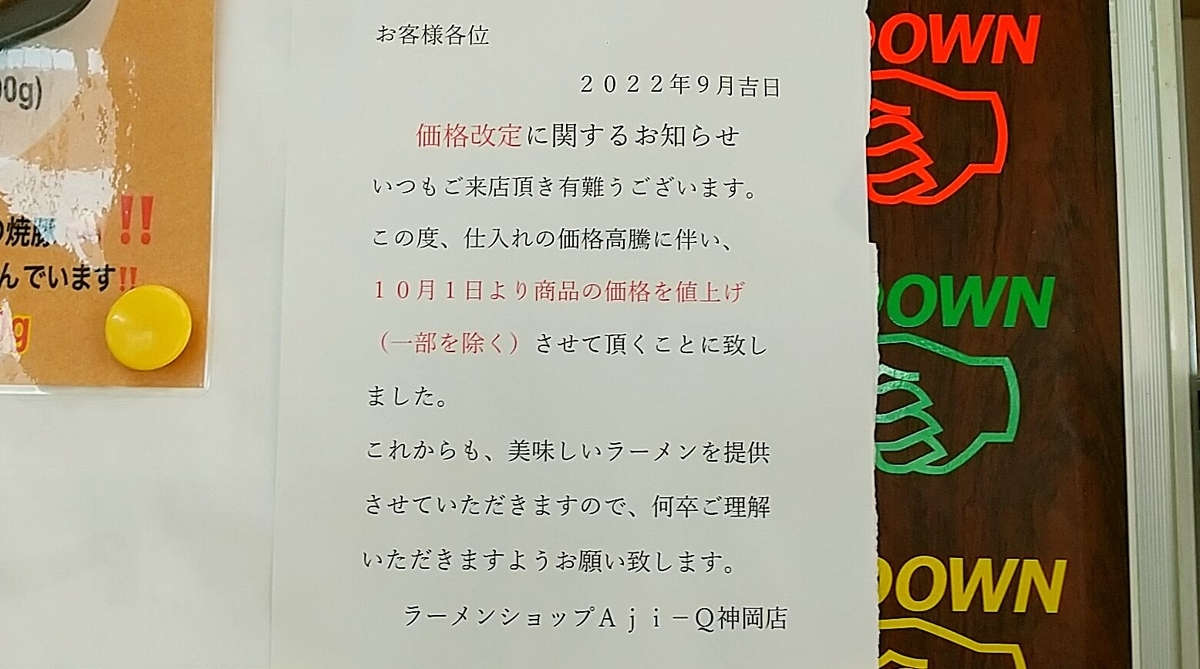 お客様各位
２０２２年９月吉日
価格改定に関するお知らせ
いつもご来店頂き有難うございます。
この度、仕入れの価格高騰に伴い、
１０月１日より商品の価格を値上げ
（一部を除く）させて頂くことに致し
ました。
これからも、美味しいラーメンを提供
させていただきますので、何卒ご理解
いただきますようお願い致します。
ラーメンショップＡｊｉ－Ｑ神岡店
00g)
の焼豚
!!
んでいます!!
g
DOWN
DOWN
DOWN